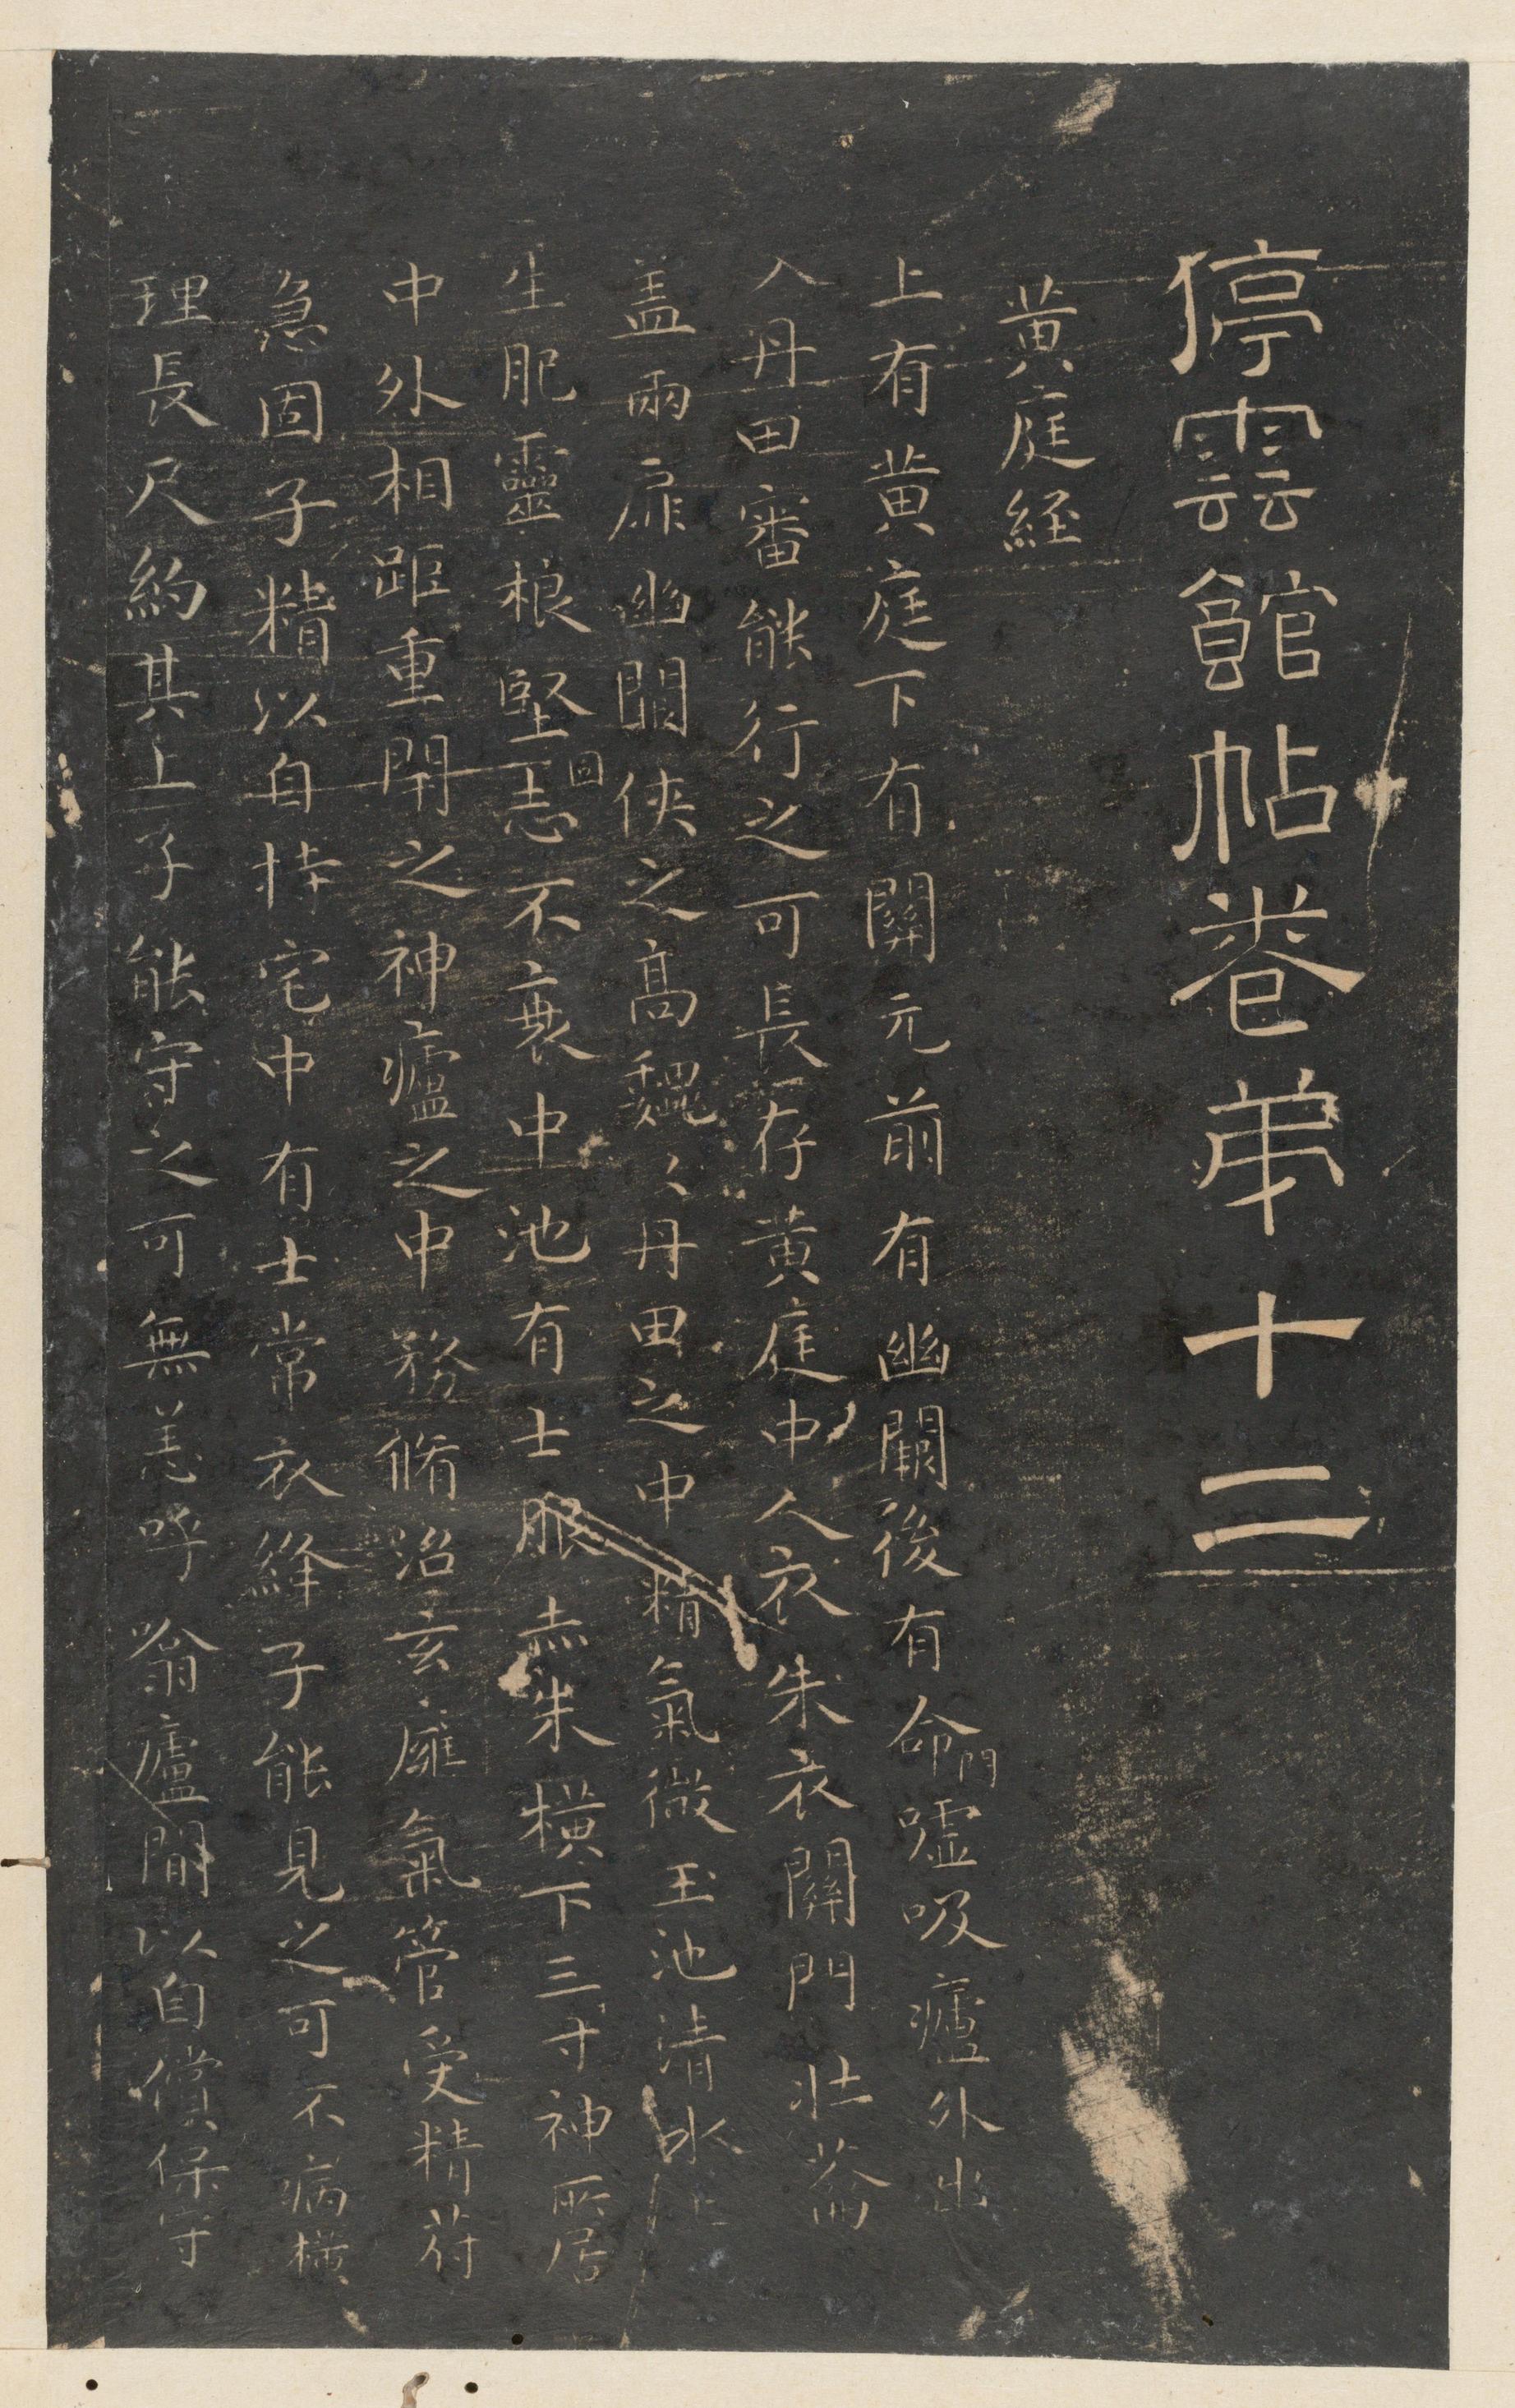 停雲館帖卷弟十二
黄庭經
上有黄庭下有關元前有幽闕後有命門噓吸廬外出
入丹田審能行之可長存黄庭中人衣朱衣關門壯蘥
盖兩扉幽闕俠之高巍〻丹田之中精氣微玉池清水上
生肥靈根堅固志不衰中池有士服赤朱橫下三寸神所居
中外相距重閉之神廬之中務脩治玄廱氣管受精符
急固子精以自持宅中有士常衣絳子能見之可不病橫
理長尺約其上子能守之可無恙呼噏廬間以自償保守